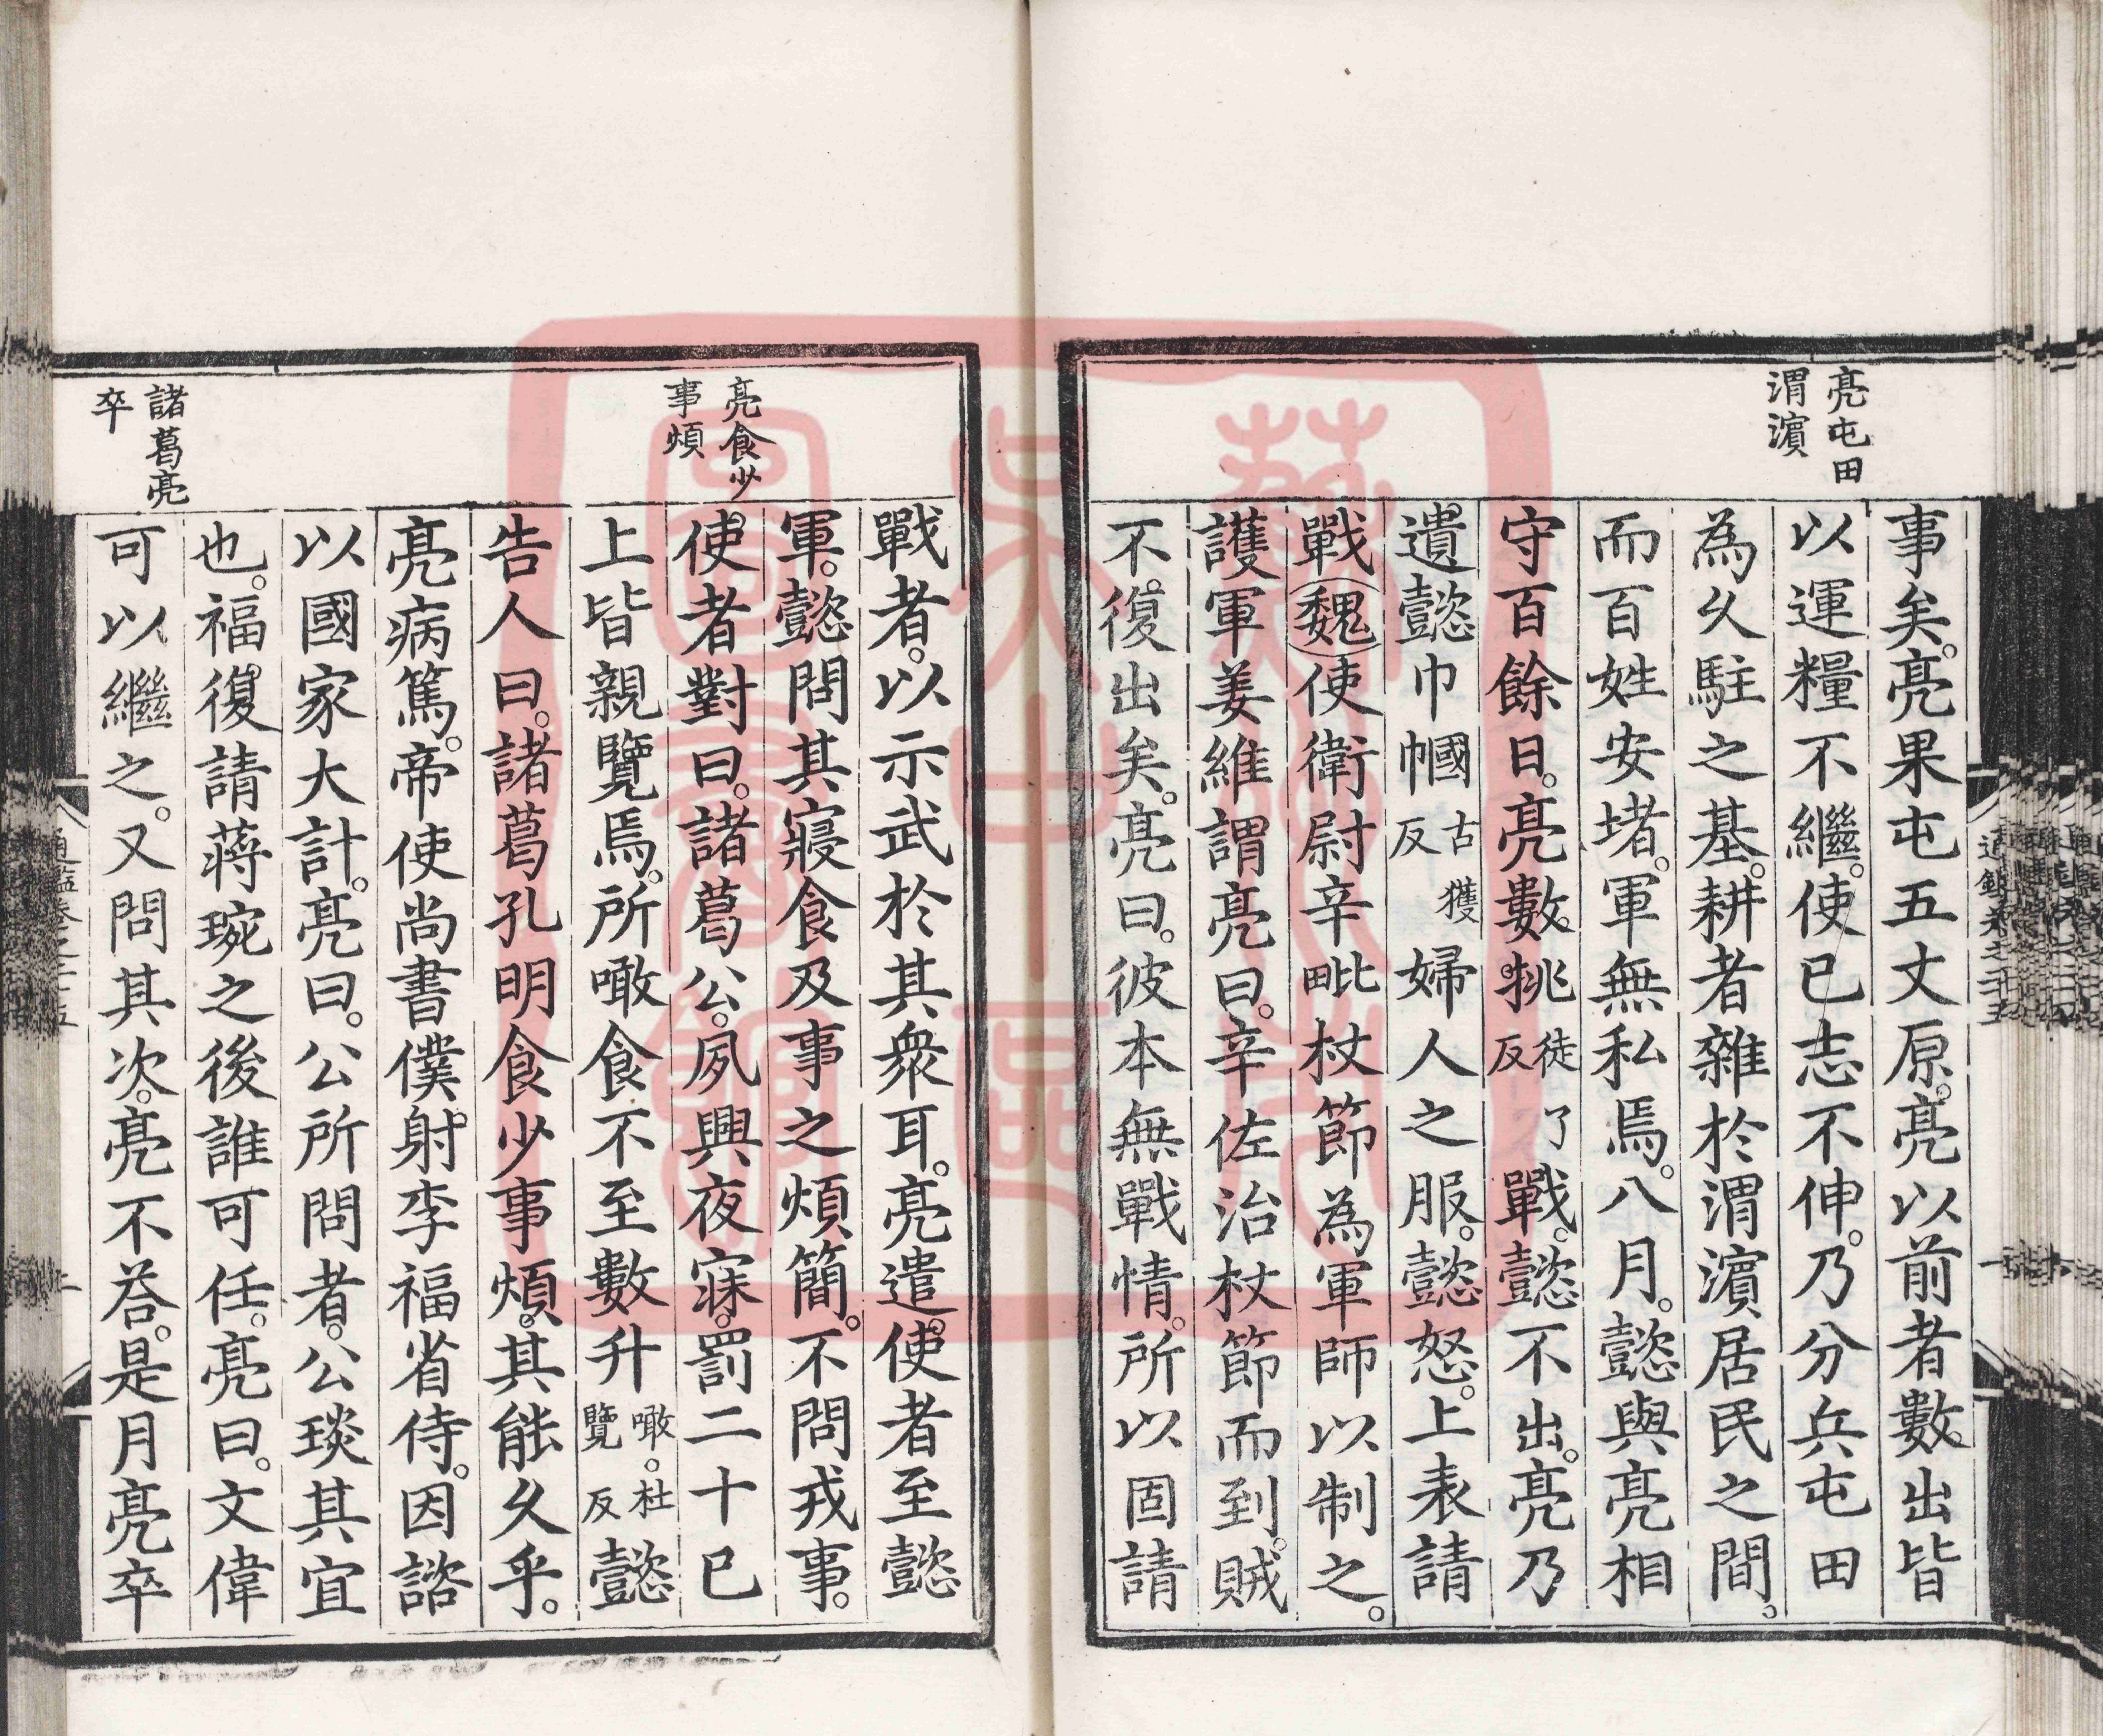 亮屯田
渭濵
事矣。亮果屯五丈原。亮以前者數出皆
以運糧不繼。使已志不伸。乃分兵屯田
為久駐之基。耕者雜於渭濵居民之間。
而百姓安堵。軍無私焉。八月。懿與亮相
守百餘日。亮數挑徒了反戰。懿不出。亮乃
遺懿巾幗古獲反婦人之服。懿怒。上表請
戰魏使衛尉辛毗杖節為軍師以制之。
護軍姜維謂亮曰。辛佐治杖節而到。賊
不復出矣。亮曰。彼本無戰情。所以固請
亮食少
事煩
諸葛亮
卒
戰者。以示武於其衆耳。亮遣使者至懿
軍。懿問其寢食及事之煩簡。不問戎事。
使者對曰。諸葛公。夙興夜寐。罰二十已
上皆親覽焉。所噉食不至數升噉。杜覽反懿
告人曰。諸葛孔明食少事煩。其能久乎。
亮病篤。帝使尚書僕射李福省侍。因諮
以國家大計。亮曰。公所問者。公琰其宜
也。福復請蔣琬之後誰可任。亮曰。文偉
可以繼之。又問其次。亮不荅。是月亮卒